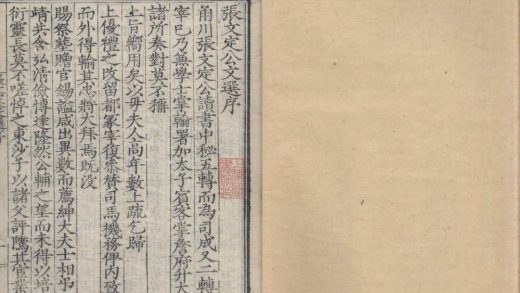 張文定公文選序
甬川張文定公讀書中秘五轉而為司成又二轉
宰已乃兼學士掌翰署加太子賓客掌詹府升大
諸所奏對莫不播
上旨嚮用矣以毋夫人高年數上疏乞歸
上優禮之改留都冢宰復叅贊司馬機務俾内致
而外得輸其忠將大拜焉既没
賜祭塟贈官錫謚咸出異數而薦紳大夫士相弔
靖共含弘清儉愽達隆然公輔之望而未得以培
衍靈長莫不嗟悼之東沙子以諸父評隲其官業